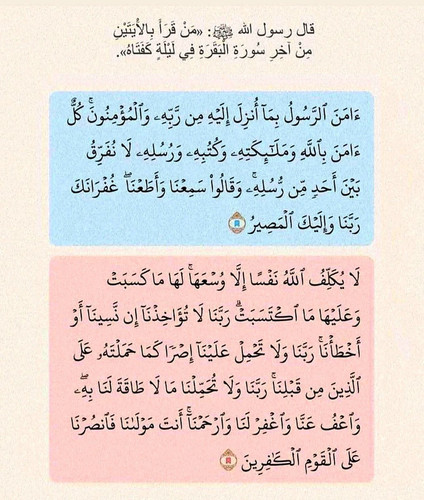 قال رسول الله ﷺ: «مَنْ قَرَأَ بِالْآيَتَيْنِ
مِنْ آخِرِ سُورَةِ الْبَقَرَةِ فِي لَيْلَةٍ كَفَتَاهُ».
ءَامَنَ ٱلرَّسُولُ بِمَآ أُنزِلَ إِلَيْهِ مِن رَّبِّهِۦ وَٱلْمُؤْمِنُونَۚ كُلٌّ
ءَامَنَ بِٱللَّهِ وَمَلَٰٓئِكَتِهِۦ وَكُتُبِهِۦ وَرُسُلِهِۦ لَا نُفَرِّقُ
بَيْنَ أَحَدٍ مِّن رُّسُلِهِۦۚ وَقَالُوا۟ سَمِعْنَا وَأَطَعْنَاۖ غُفْرَانَكَ
رَبَّنَا وَإِلَيْكَ ٱلْمَصِيرُ
لَا يُكَلِّفُ ٱللَّهُ نَفْسًا إِلَّا وُسْعَهَاۚ لَهَا مَا كَسَبَتْ
وَعَلَيْهَا مَا ٱكْتَسَبَتْۗ رَبَّنَا لَا تُؤَاخِذْنَآ إِن نَّسِينَآ أَوْ
أَخْطَأْنَاۚ رَبَّنَا وَلَا تَحْمِلْ عَلَيْنَآ إِصْرًا كَمَا حَمَلْتَهُۥ عَلَى
ٱلَّذِينَ مِن قَبْلِنَاۚ رَبَّنَا وَلَا تُحَمِّلْنَا مَا لَا طَاقَةَ لَنَا بِهِۦۖ
وَٱعْفُ عَنَّا وَٱغْفِرْ لَنَا وَٱرْحَمْنَآۚ أَنتَ مَوْلَىٰنَا فَٱنصُرْنَا
عَلَى ٱلْقَوْمِ ٱلْكَٰفِرِينَ